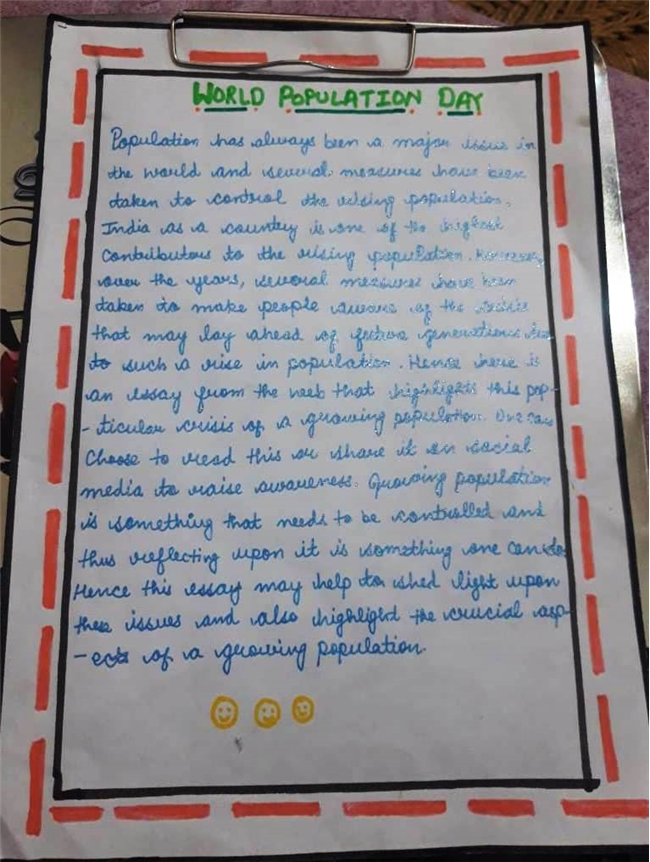 WORLD POPULATION DAY
Population has always been a major issue in
the world and several measures have been
taken to control the rising population.
India as a country is one of the highest
contributors to the rising population. However,
over the years, several measures have been
taken to make people aware of the
that may lay ahead of future generations due
to such a rise in population. Hence here is
an essay from the web that highlights this pap-
-ticular crisis of a growing population. One can
Choose to read this or share it on social
media to raise awareness. Growing population
is something that needs to be controlled and
thus reflecting upon it is something one can do.
Hence this essay may help to shed light upon
these issues and also highlight the crucial asp-
-ects of a growing population.